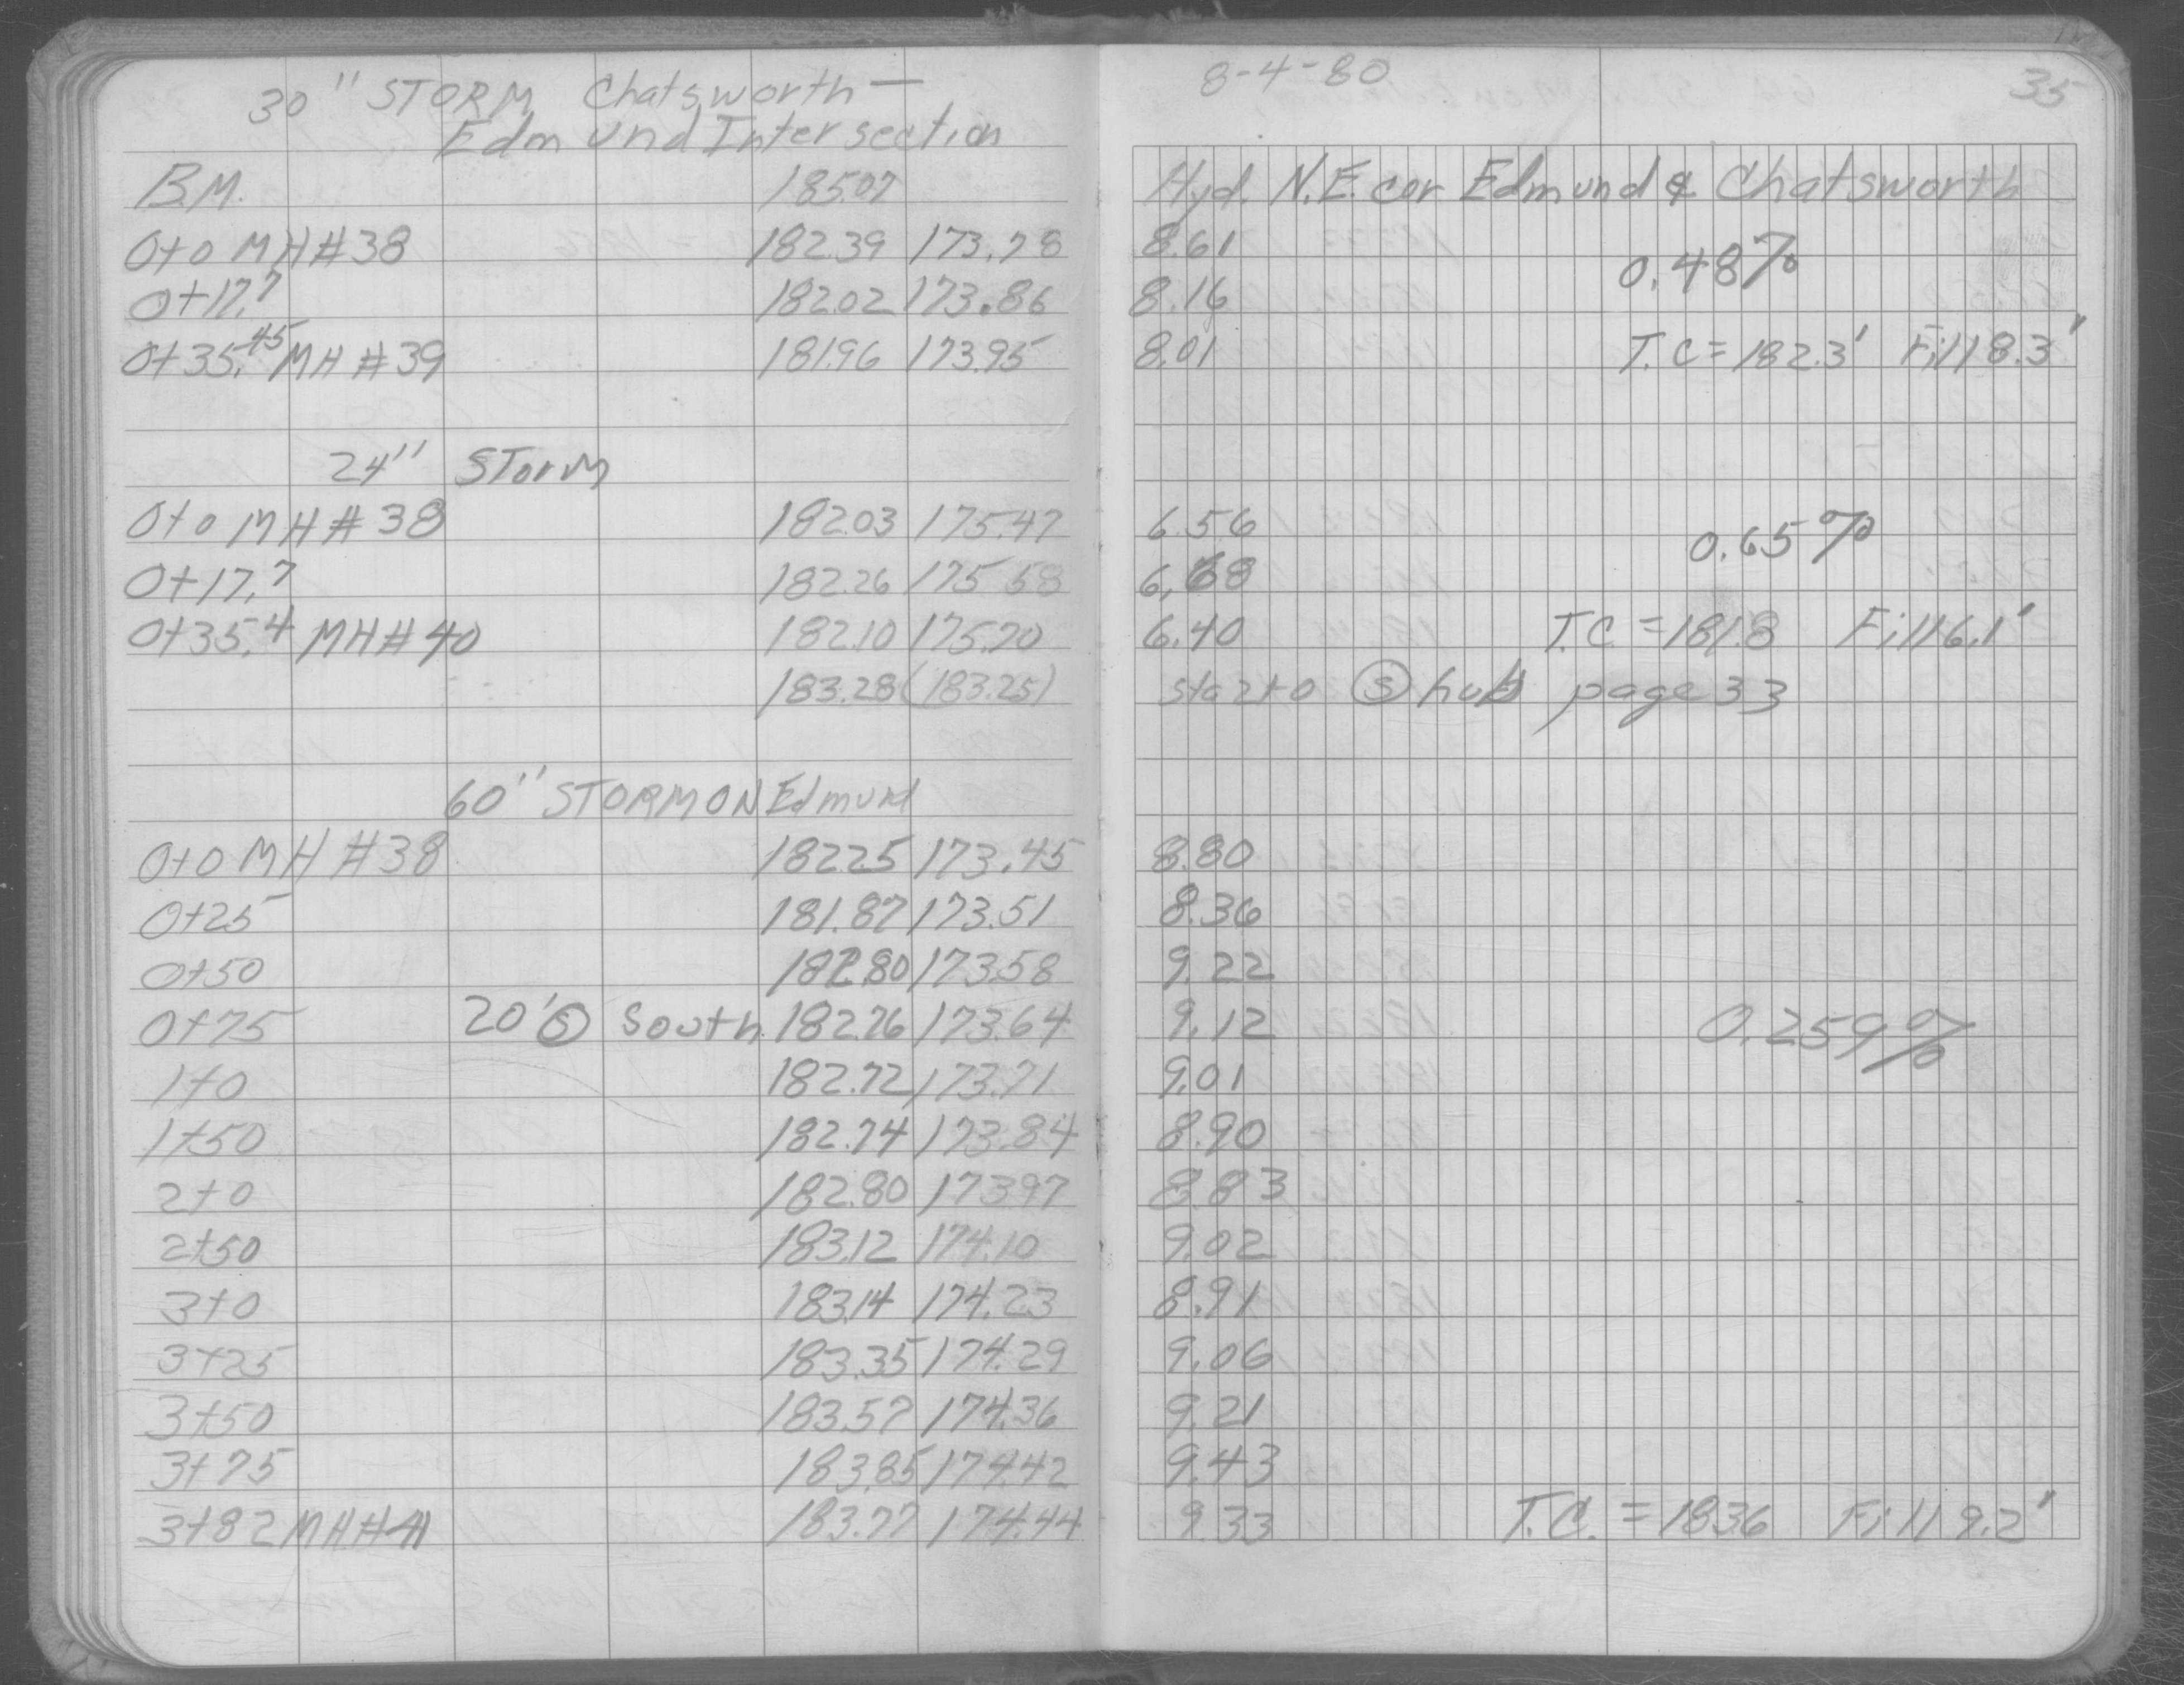 30" STORM Chatsworth —
Edmund Intersection
8-4-80 35
B.M. 185.07 Hyd. N.E. cor Edmund & Chatsworth
0+0 MH #38 182.39 173.78 8.61 0.48%
0+17.7 182.02 173.86 8.16
0+35.45 MH #39 181.96 173.95 8.01 T.C = 182.3' Fill 8.3'
24" STorM
0+0 MH #38 182.03 175.47 6.56 0.65%
0+17.7 182.26 175.58 6.68
0+35.4 MH #40 182.10 175.70 6.40 T.C = 181.8 Fill 6.1'
183.28 (183.25) sta 2+0 Ⓢ hub page 33
60" STORM ON Edmund
0+0 MH #38 182.25 173.45 8.80
0+25 181.87 173.51 8.36
0+50 182.80 173.58 9.22
0+75 20' Ⓢ South 182.76 173.64 9.12 0.259%
1+0 182.72 173.71 9.01
1+50 182.74 173.84 8.90
2+0 182.80 173.97 8.83
2+50 183.12 174.10 9.02
3+0 183.14 174.23 8.91
3+25 183.35 174.29 9.06
3+50 183.57 174.36 9.21
3+75 183.85 174.42 9.43
3+82 MH #41 183.77 174.44 9.33 T.C. = 183.6 Fill 9.2'